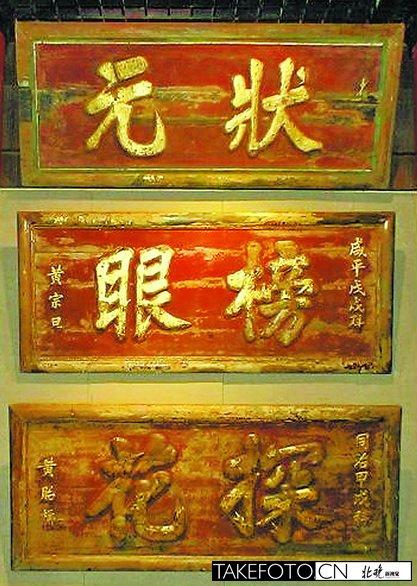 狀元
咸平戊戌科
榜眼
黃宗旦
同治甲戌科
探花
黃貽楫
TAKEFOTO CN 北晚新视觉